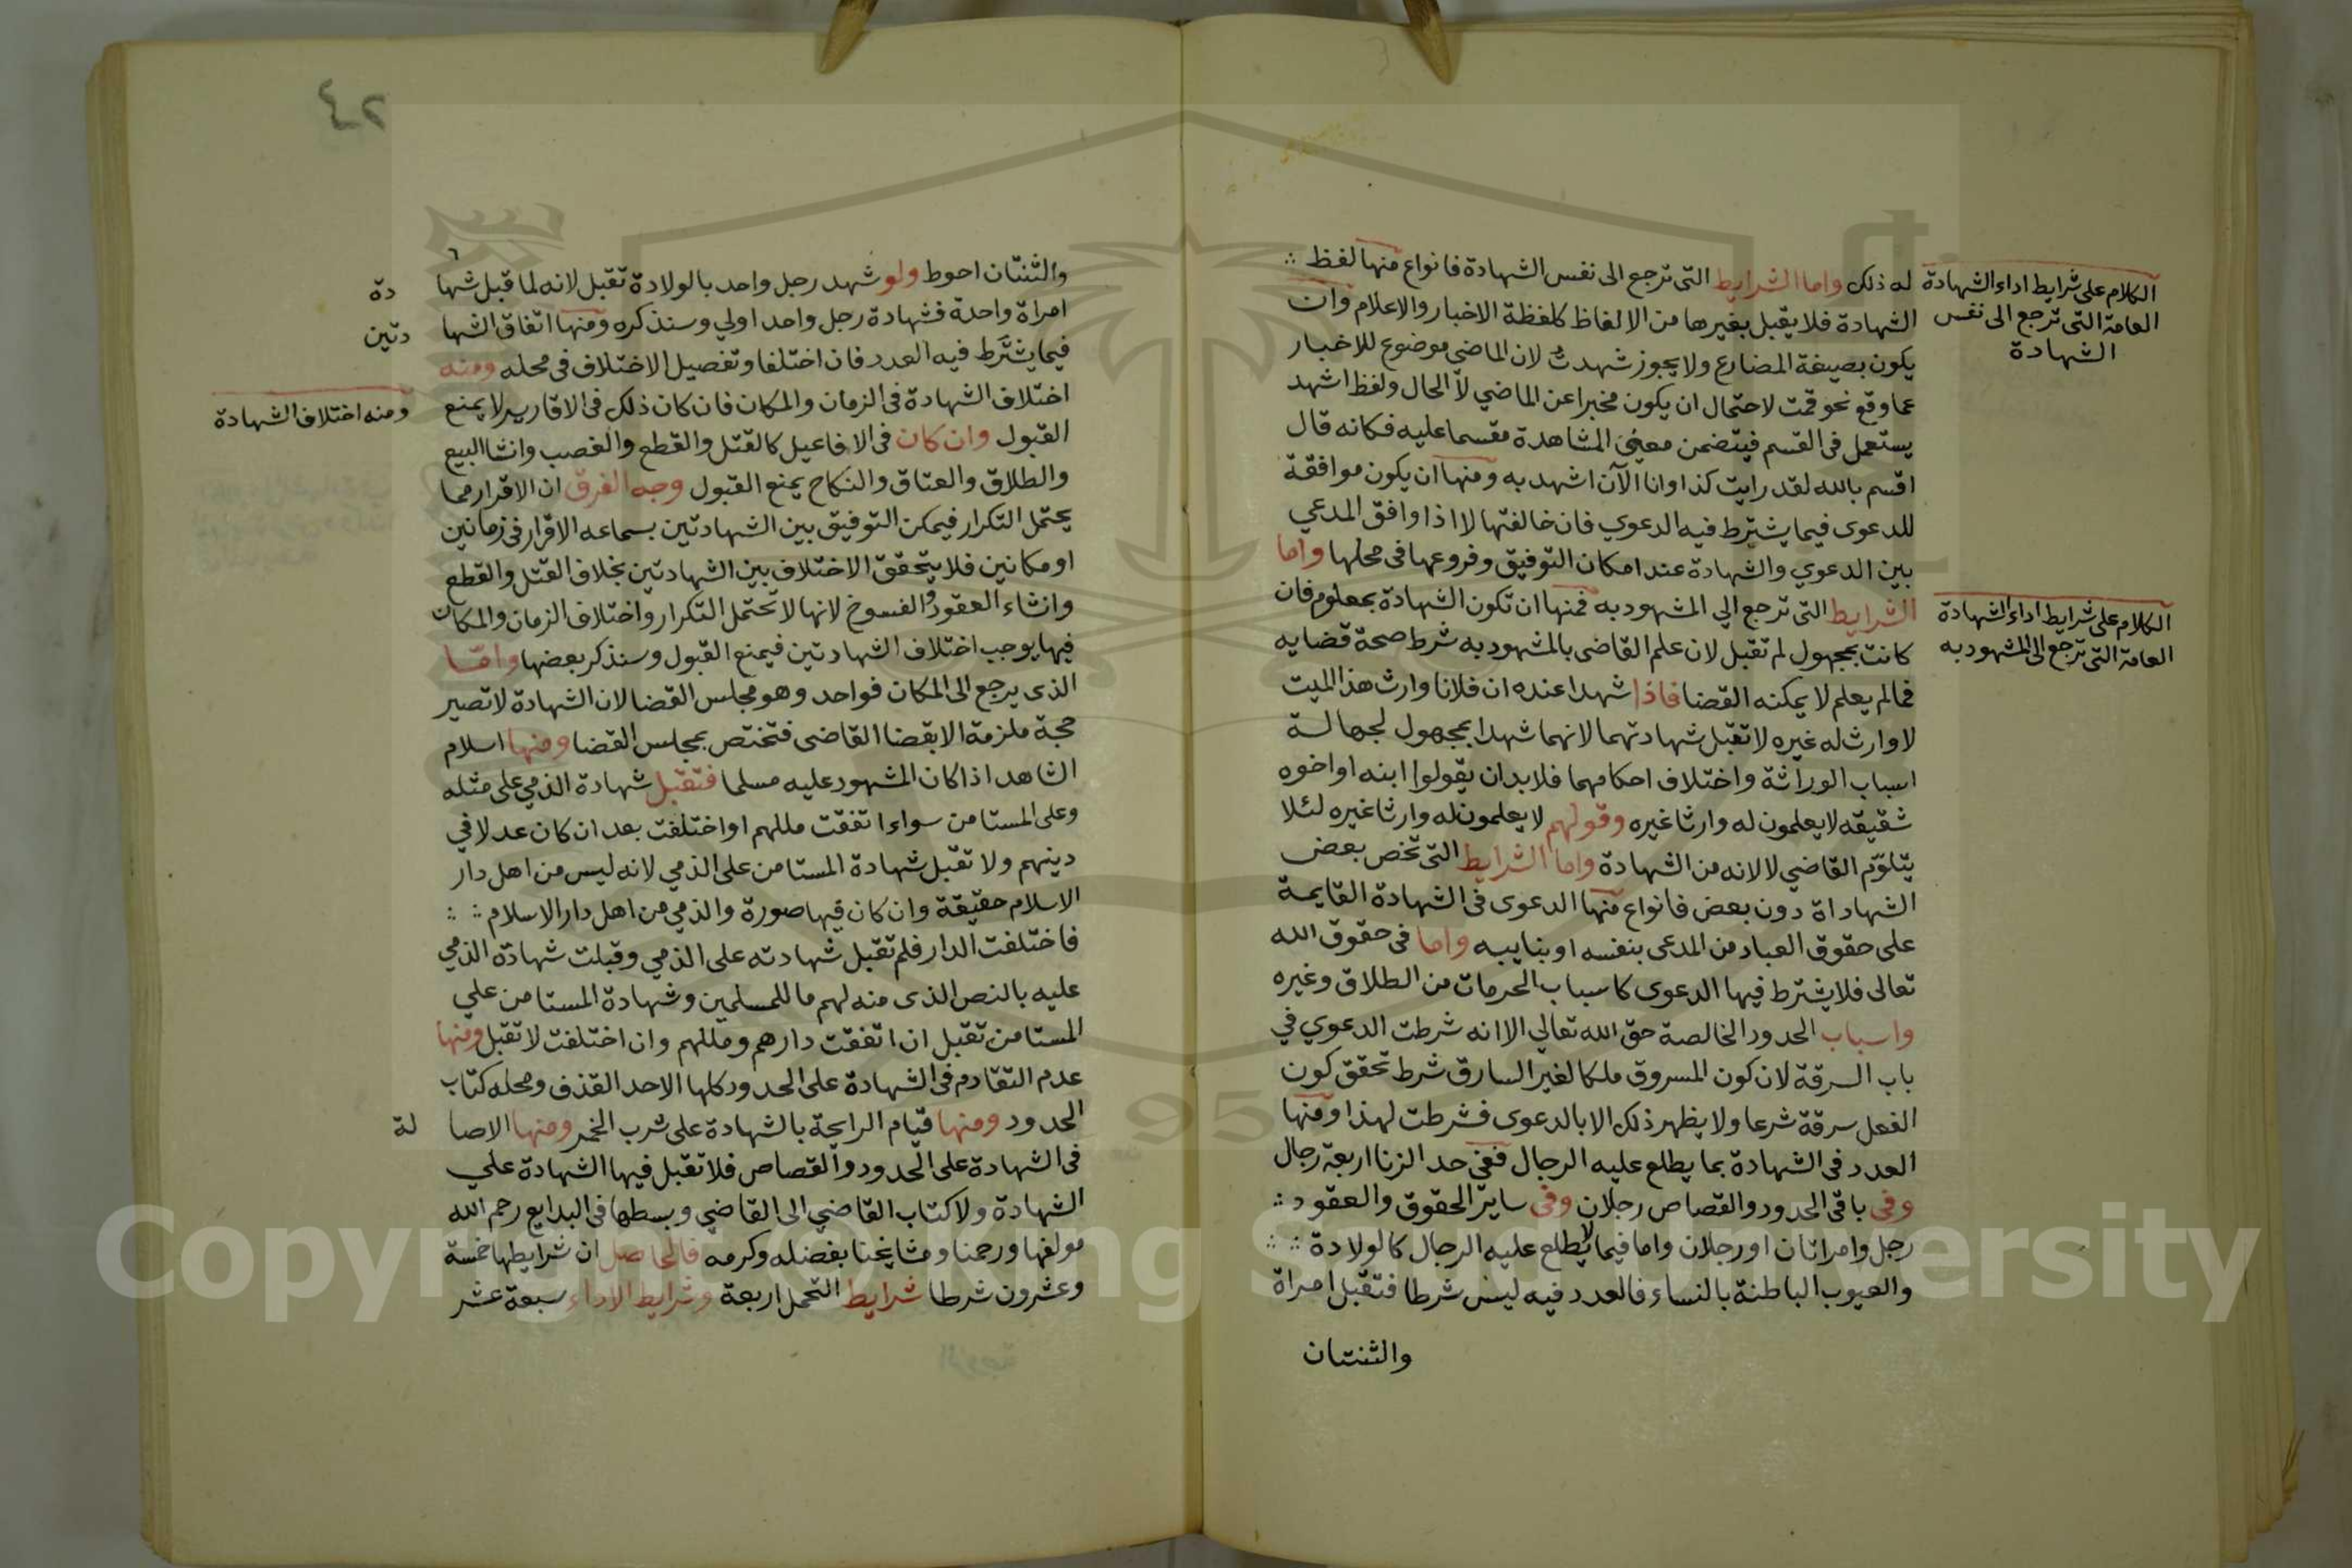 له ذلك واما الشرايط التى ترجع الى نفس الشهادة فانواع منها لفظ
الشهادة فلا يقبل بغيرها من الالفاظ كلفظة الاخبار والاعلام وان
يكون بصيغة المضارع ولا يجوز شهدت لان الماضي موضوع للاخبار
عما وقع نحو قمت لاحتمال ان يكون مخبرا عن الماضي لا الحال ولفظ اشهد
يستعمل فى القسم فيتضمن معنى المشاهدة مقسما عليه فكانه قال
اقسم بالله لقد رايت كذا وانا الآن اشهد به ومنها ان يكون موافقة
للدعوى فيما يشترط فيه الدعوي فان خالفتها لا اذا وافق المدعي
بين الدعوي والشهادة عند امكان التوفيق وفروعها فى محلها واما
الشرايط التى ترجع الي المشهود به فمنها ان تكون الشهادة بمعلوم فان
كانت بمجهول لم تقبل لان علم القاضى بالمشهود به شرط صحة قضايه
فما لم يعلم لا يمكنه القضا فاذا شهدا عنده ان فلانا وارث هذا الميت
لا وارث له غيره لا تقبل شهادتهما لانهما شهدا بمجهول لجهالة
اسباب الوراثة واختلاف احكامهما فلا بد ان يقولوا ابنه او اخوه
شقيقه لا يعلمون له وارثا غيره وقولهم لا يعلمون له وارثا غيره لئلا
يتلوّم القاضي لا لانه من الشهادة واما الشرايط التى تخص بعض
الشهاداة دون بعض فانواع منها الدعوى فى الشهادة القايمة
على حقوق العباد من المدعى بنفسه او بنايبه واما فى حقوق الله
تعالى فلا يشترط فيها الدعوى كاسباب الحرمات من الطلاق وغيره
واسباب الحدود الخالصة حق الله تعالي الا انه شرطت الدعوي في
باب السرقة لان كون المسروق ملكا لغير السارق شرط تحقق كون
الفعل سرقة شرعا ولا يظهر ذلك الا بالدعوى فشرطت لهذا ومنها
العدد فى الشهادة بما يطلع عليه الرجال ففى حد الزنا اربعة رجال
وفى باقى الحدود والقصاص رجلان وفى ساير الحقوق والعقود
رجل وامراتان او رجلان واما فيما لا يطلع عليه الرجال كالولادة
والعيوب الباطنة بالنساء فالعدد فيه ليس شرطا فتقبل امراة
والثنتان
الكلام على شرايط اداء الشهادة
العامة التى ترجع الى نفس
الشهادة
الكلام على شرايط اداء الشهادة
العامة التى ترجع الى المشهود به
٢٤
والثنتان احوط ولو شهد رجل واحد بالولادة تقبل لانه لما قبل شها دة
امراة واحدة فشهادة رجل واحد اولي وسنذكره ومنها اتفاق الشها دتين
فيما يشترط فيه العدد فان اختلفا وتفصيل الاختلاف فى محله ومنه
اختلاف الشهادة فى الزمان والمكان فان كان ذلك فى الاقارير لا يمنع
القبول وان كان فى الافاعيل كالقتل والقطع والغصب وانشا البيع
والطلاق والعتاق والنكاح يمنع القبول وجه الفرق ان الاقرار مما
يحتمل التكرار فيمكن التوفيق بين الشهادتين بسماعه الاقرار فى زمانين
او مكانين فلا يتحقق الاختلاف بين الشهادتين بخلاف القتل والقطع
وانشاء العقود والفسوخ لانها لا تحتمل التكرار واختلاف الزمان والمكان
فيها يوجب اختلاف الشهادتين فيمنع القبول وسنذكر بعضها وامّا
الذى يرجع الى المكان فواحد وهو مجلس القضا لان الشهادة لا تصير
حجة ملزمة الا بقضا القاضى فتختص بمجلس القضا ومنها اسلام
الشاهد اذا كان المشهود عليه مسلما فتقبل شهادة الذمي على مثله
وعلى المستامن سواء اتفقت مللهم او اختلفت بعد ان كان عدلا في
دينهم ولا تقبل شهادة المستامن على الذمي لانه ليس من اهل دار
الاسلام حقيقة وان كان فيها صورة والذمي من اهل دار الاسلام
فاختلفت الدار فلم تقبل شهادته على الذمي وقبلت شهادة الذمي
عليه بالنص الذى منه لهم ما للمسلمين وشهادة المستامن علي
المستامن تقبل ان اتفقت دارهم ومللهم وان اختلفت لا تقبل ومنها
عدم التقادم فى الشهادة على الحدود كلها الا حد القذف ومحله كتاب
الحدود ومنها قيام الرايحة بالشهادة على شرب الخمر ومنها الاصا لة
فى الشهادة على الحدود والقصاص فلا تقبل فيها الشهادة علي
الشهادة ولا كتاب القاضي الى القاضي وبسطها فى البدايع رحم الله
مولفها ورحمنا ومشايخنا بفضله وكرمه فالحاصل ان شرايطها خمسة
وعشرون شرطا شرايط التحمل اربعة وشرايط الاداء سبعة عشر
ومنه اختلاف الشهادة
Copyright © King Saud University